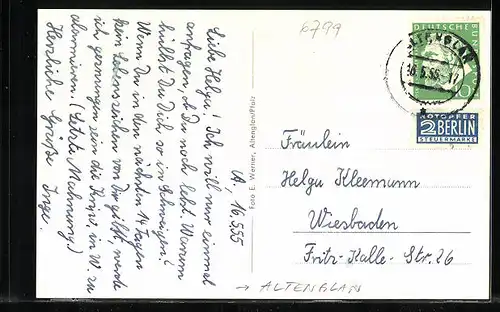 6799
Altenglan, 16.5.55
Liebe Helga! Ich will nur einmal
anfragen, ob Du noch lebst. Warum
hüllst Du Dich so in Schweigen?
Wenn Du in den nächsten 14 Tagen
kein Lebenszeichen von Dir gibst, werde
ich gezwungen sein die Kripo, in W. zu
alarmieren. (Letzte Mahnung)
Herzliche Grüße Inge.
Foto E. Werner, Altenglan/Pfalz
DEUTSCHE BUND
10
ALTENGLAN
16.5.55-17
NOTOPFER
2 BERLIN
STEUERMARKE
Fräulein
Helga Kleemann
Wiesbaden
Fritz-Kalle-Str. 26
→ ALTENGLAN